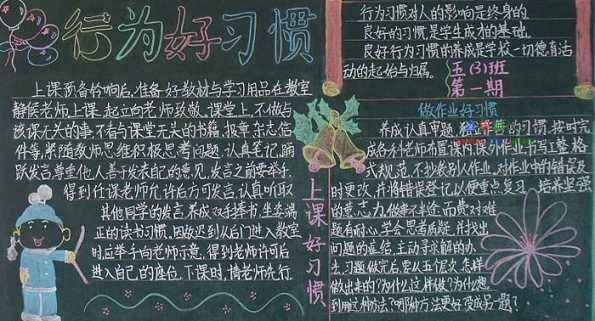 行为好习惯
上课预备铃响后,准备好教材与学习用品在教室
静候老师上课,起立向老师致敬。课堂上,不做与
该课无关的事,不看与课堂无关的书籍,报章杂志信
件等,紧随教师思维积极思考问题,认真笔记,踊
跃发言尊重他人善于发表自己的意见,发言之前要举手,
得到任课老师允许后方可发言,认真听取
其他同学的发言,养成双手捧书,坐姿端
正的读书习惯,因故迟到从后门进入教室
时应举手向老师示意,得到老师许可后
进入自己的座位,下课时,请老师先行.
上课好习惯
行为习惯对人的影响是终身的.
良好的习惯是学生成才的基础,
良好行为习惯的养成是学校一切德育活
动的起始与归属.
五(3)班
第一期
做作业好习惯
养成认真审题,的习惯,按时完
成各科老师布置课内,课外作业,书写工整,格
式规范,不抄袭别人作业,对作业中的错误及
时更改,并将错误登记,以便重点复习,培养坚强
的意志力,做事不半途而废对难
题有耐心,学会思考质疑,并找出
问题的症结,主动寻求解的办
法,习题做完后,要从五个层次,怎样
做出来的?为什么这样做?为什么想
到用这种方法?哪种方法更好变成另一题?